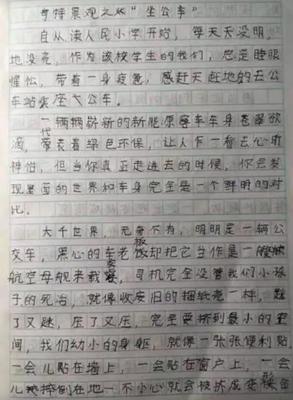 奇特景观之照"坐公车"
自从读人民小学开始，每天天没明，
地没亮，作为该校学生的我们，总是睡眼
惺忪，带着一身疲惫，感赶天赶地的去公
车站去座大公车。
一辆辆崭新的新能源客车车身苍翠欲
滴，一代表着绿色环保，让人乍一看去心旷
神怡，但当你真正走进去的时候，你会发
现里面的世界和车身完全是一个鲜明的对
比。
大千世界，无奇不有，明明是一辆公
交车，黑心的车老板却把它当作是一艘
航空母舰来载客，司机完全没管我们小孩
子的死活，就像收废旧的捆纸壳一样，踩
了又踩，压了又压，完全要挤到最小的空
间，我们幼小的身躯，就像一张张便利贴
一会儿贴在墙上，一会贴在窗户上，一会
儿摔倒在地一不小心就会被挤成变